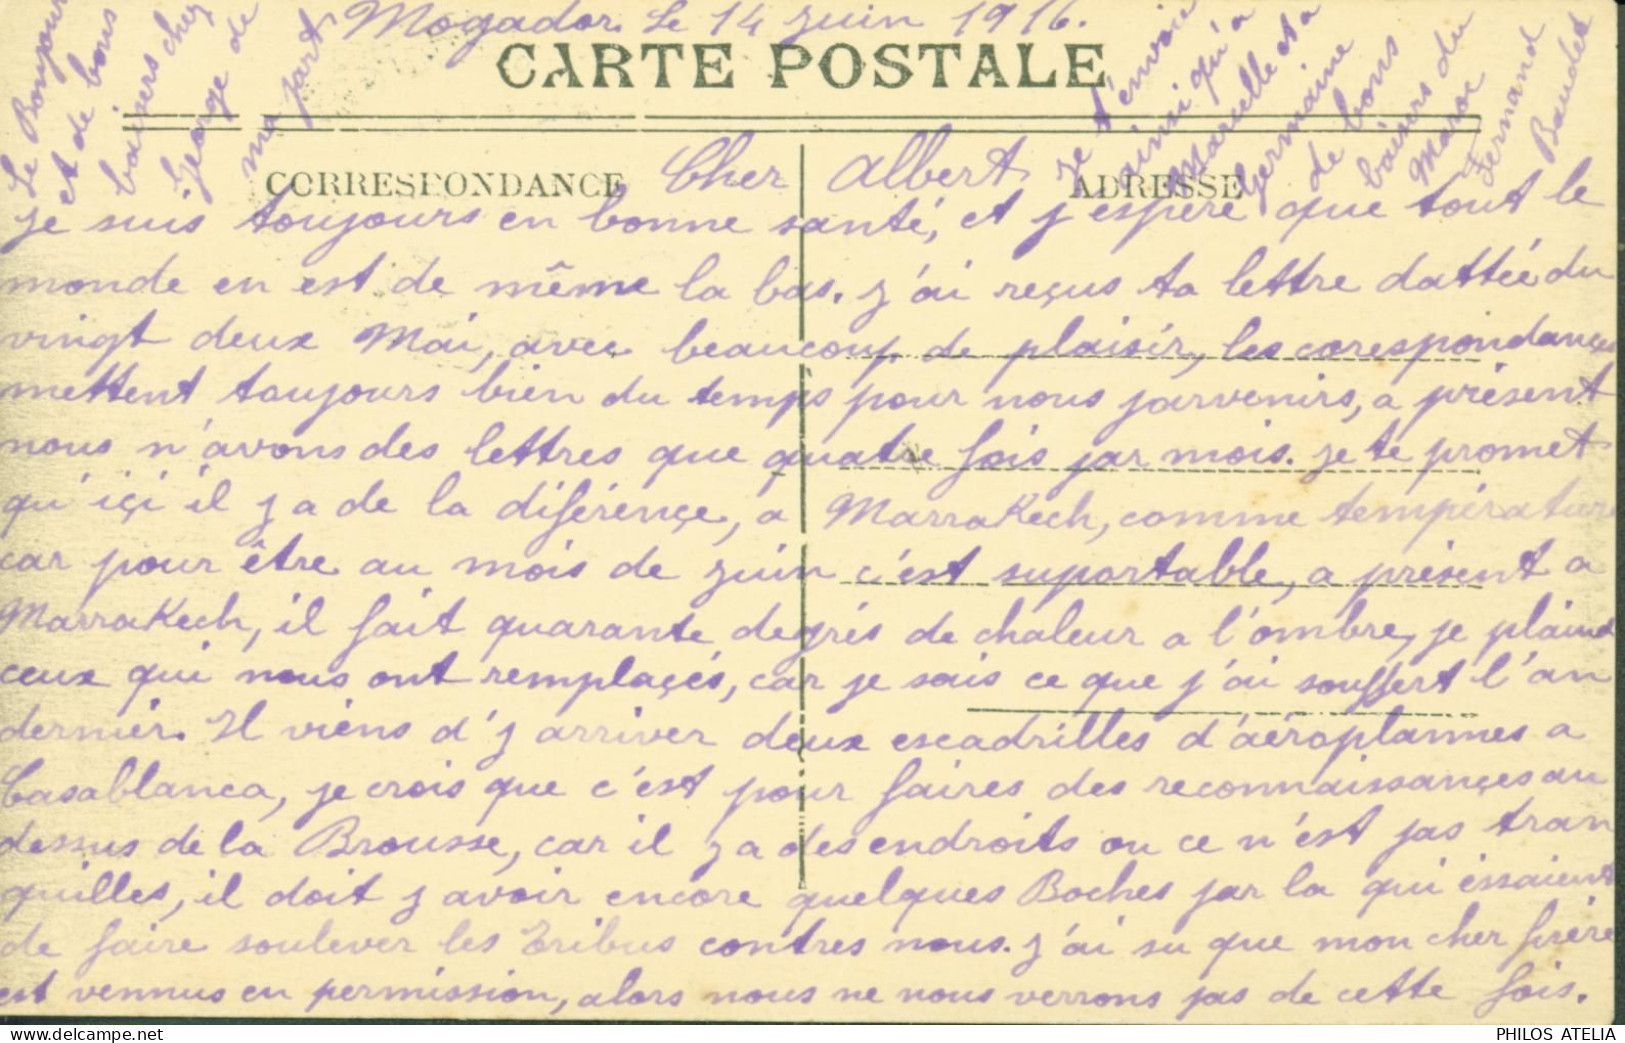 Mogador Le 14 Juin 1916.
CARTE POSTALE
CORRESPONDANCE
ADRESSE
Cher Albert
Je suis toujours en bonne santé, et j'espère que tout le
monde en est de même la bas. J'ai reçus ta lettre dattée du
vingt deux Mai, avec beaucoup de plaisir, les corespondances
mettent toujours bien du temps pour nous parvenirs, a présent
nous n'avons des lettres que quatre fois par mois. Je te promet
qu'içi il y a de la diférençe, a Marrakech, comme température
car pour être au mois de Juin c'est suportable, a présent a
Marrakech, il fait quarante degrés de chaleur a l'ombre, je plains
ceux qui nous ont remplaçés, car je sais ce que j'ai souffert l'an
dernier. Il viens d'y arriver deux escadrilles d'aéroplannes a
Casablanca, je crois que c'est pour faires des reconnaissançes au
dessus de la Brousse, car il y a des endroits ou ce n'est pas tran
quilles, il doit y avoir encore quelques Boches par la qui éssaient
de faire soulever les Tribus contres nous. J'ai su que mon cher frère
est vennus en permission, alors nous ne nous verrons pas de cette fois.
Je t'envoie
ainsi qu'a
Marcelle et a
Germaine
de bons
baisers du
Maroc
Fernand
Baudet
Le Bonjour
et de bons
baisers chez
George de
ma part
PHILOS ATELIA